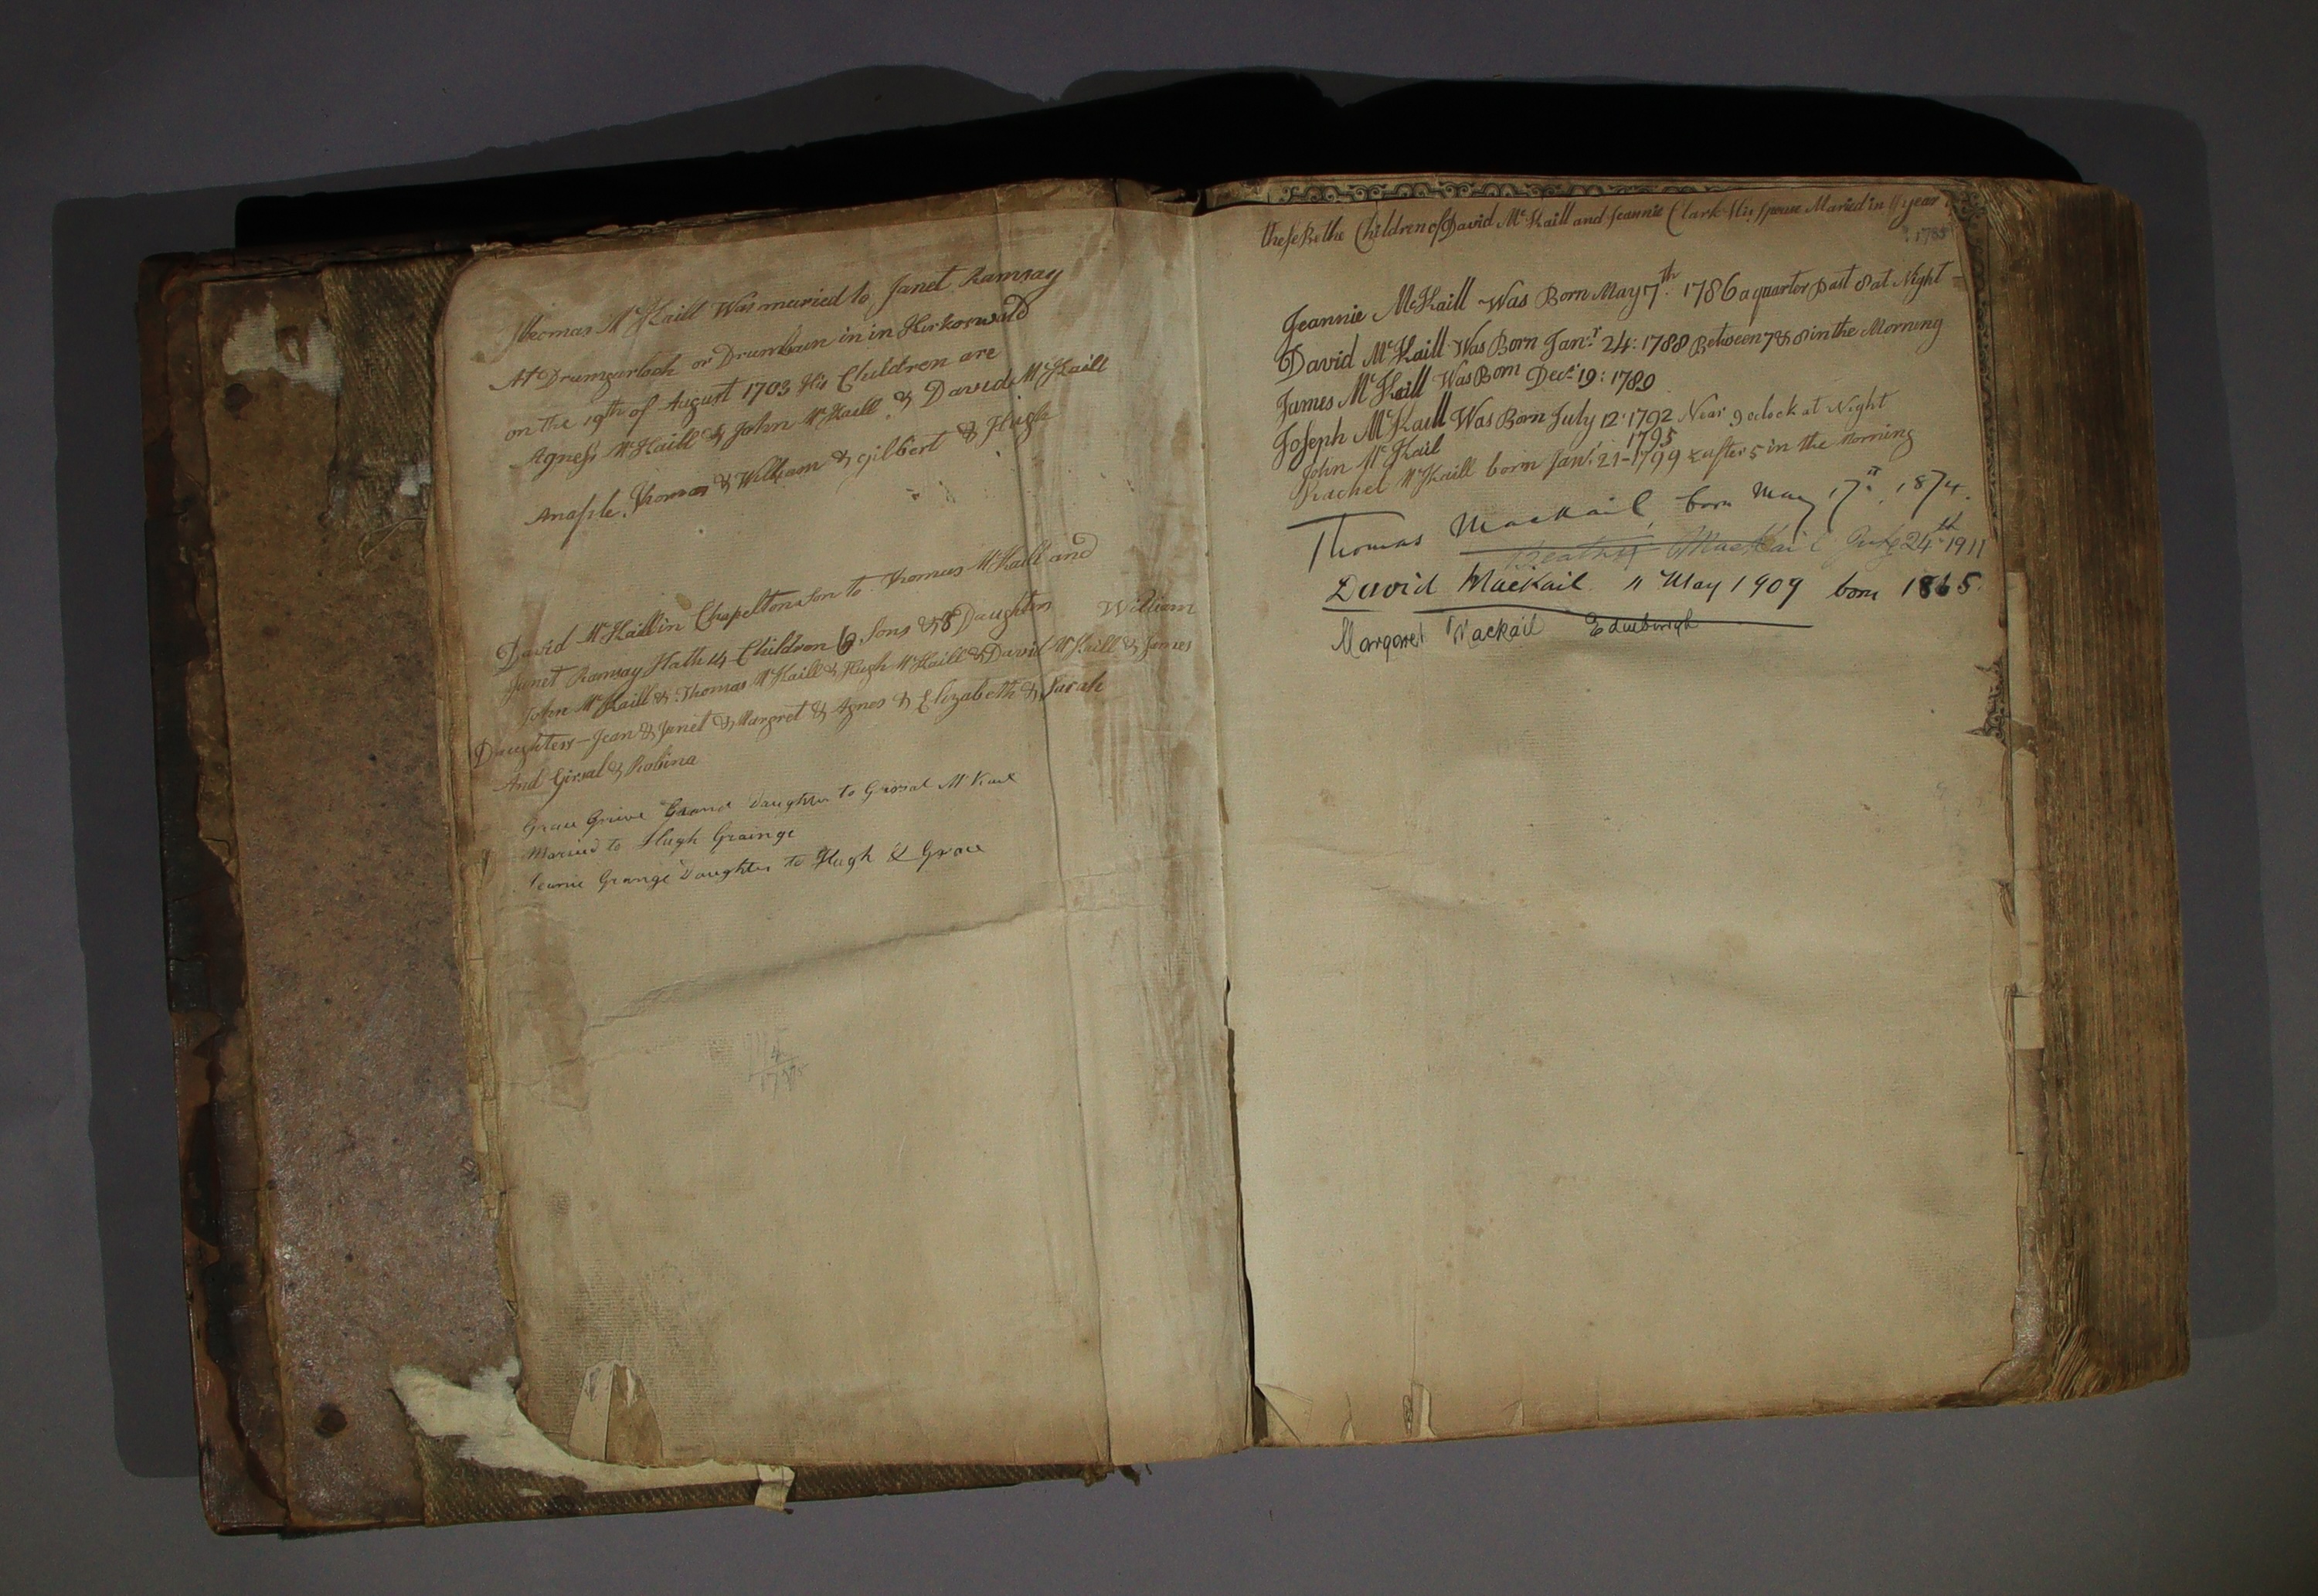 Thomas McKaill Was maried to Janet Ramsay
At Drumgarloch or Drumbain in in Kirkoswald
on the 19th of August 1703 His Children are
Agness McKaill & John McKaill & David McKaill
Anaple Thomas & William & Gilbert & Hugh
David McKaill in Chapelton son to Thomas McKaill and
Janet Ramsay Hath 14 Children 6 Sons & 8 Daughters William
John McKaill & Thomas McKaill & Hugh McKaill & David McKaill & James
Daughters - Jean & Janet & Margret & Agnes & Elizabeth & Sarah
And Girsal & Robina
Grace Grieve Grand Daughter to Girsal McKail
Maried to Hugh Grainge
Jeanie Grange Daughter to Hugh & Grace
these Be the Children of David McKaill and Jeannie Clark His spouse Maried in year
1785
Jeannie McKaill Was Born May 7th. 1786 a quarter Past 8 at Night -
David McKaill Was Born Janr. 24: 1788 Between 7 & 8 in the Morning
James McKaill Was Born Decr. 19: 1789
Joseph McKaill Was Born July 12: 1792 Near 9 oclock at Night
John McKail 1795
Rachel McKaill born Janr. 21 - 1799 after 5 in the Morning
Thomas Mackail, born May 17th. 1874.
MacKail July 24th 1911
David MacKail. 11 May 1909 born 1865.
Margaret Mackail Edinburgh